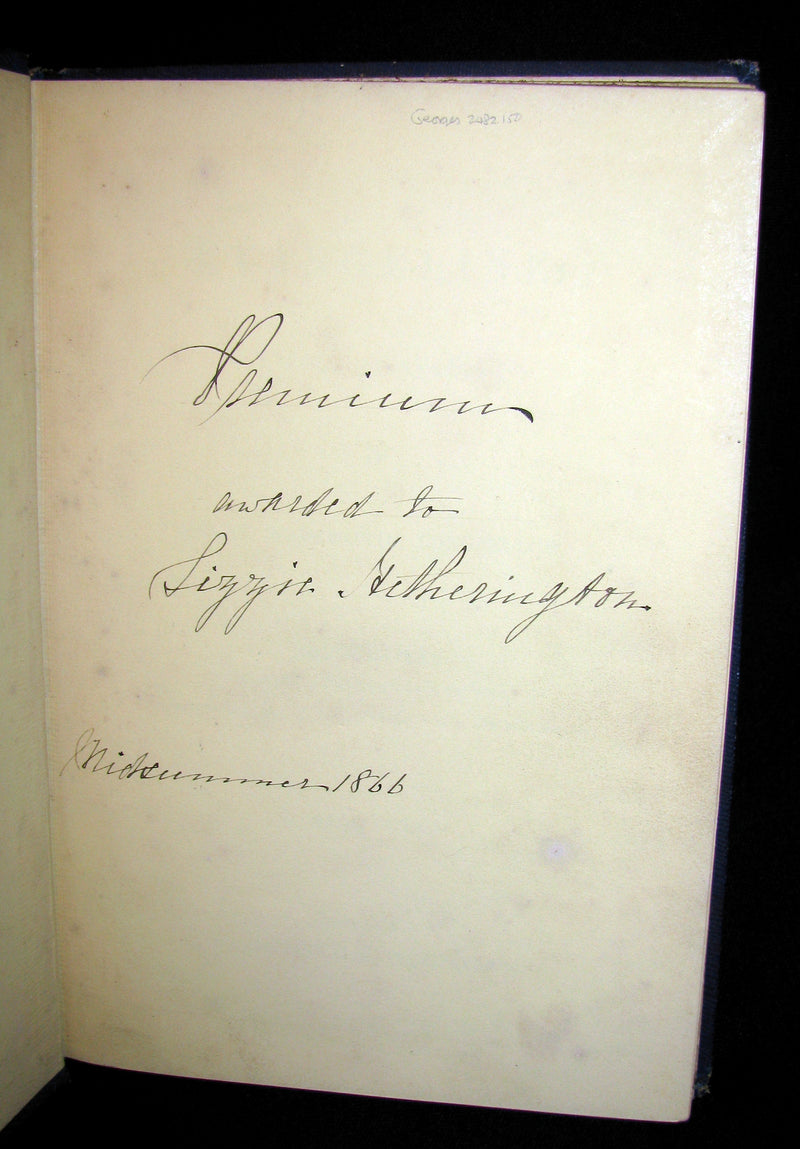 Georges
Premium
awarded to
Lizzie Hetherington.
Midsummer 1866